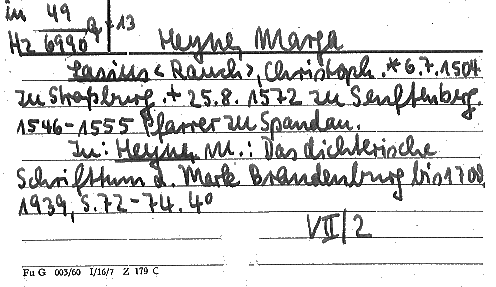 in 49 Q 13
Hz 6990
Heyne, Marga
Lasius < Rauch>, Christoph. *6.7.1504
zu Straßburg. + 25.8.1572 zu Senftenberg.
1546-1555 Pfarrer zu Spandau.
In: Heyne, M.: Das dichterische
Schrifttum d. Mark Brandenburg bis 1700,
1939, S. 72-74. 4°
VII/2
Fu G 003/60 I/16/7 Z 179 C